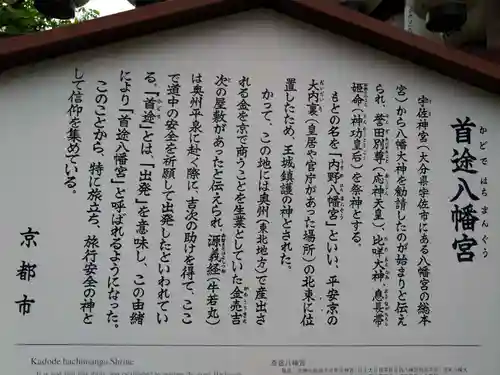 首途八幡宮
かどではちまんぐう
宇佐神宮（大分県宇佐市にある八幡宮の総本
宮）から八幡大神を勧請したのが始まりと伝え
られ、誉田別尊（応神天皇）、比咩大神、息長帯
姫命（神功皇后）を祭神とする。
もとの名を「内野八幡宮」といい、平安京の
大内裏（皇居や官庁があった場所）の北東に位
置したため、王城鎮護の神とされた。
かつて、この地には奥州（東北地方）で産出さ
れる金を京で商うことを生業としていた金売吉
次の屋敷があったと伝えられ、源義経（牛若丸）
は奥州平泉に赴く際に、吉次の助けを得て、ここ
で道中の安全を祈願して出発したといわれてい
る。「首途」とは、「出発」を意味し、この由緒
により「首途八幡宮」と呼ばれるようになった。
このことから、特に旅立ち、旅行安全の神と
して信仰を集めている。
京都市
Kadode hachimangu Shrine
首途八幡宮